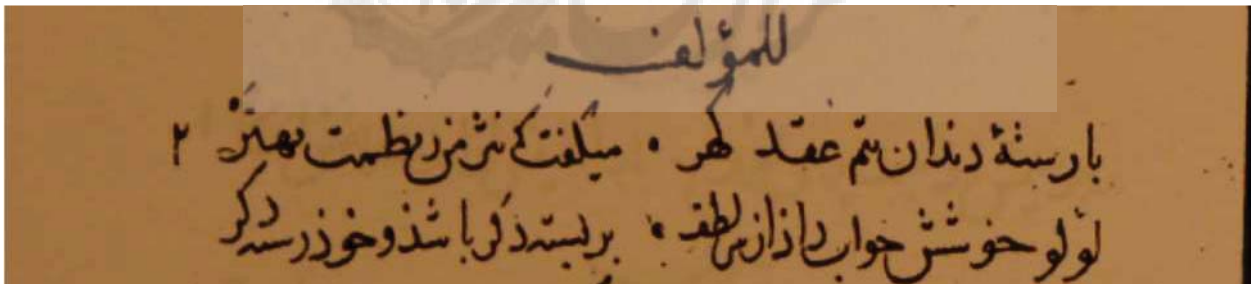 للمؤلف
با رستهٔ دندان بتم عقد گهر • میگفت که نثر من ز نظمت بهتر ۲
لؤلو خوشش جواب داذ از سر لطف • بر بسته دگر باشذ و خوذ رسته دگر